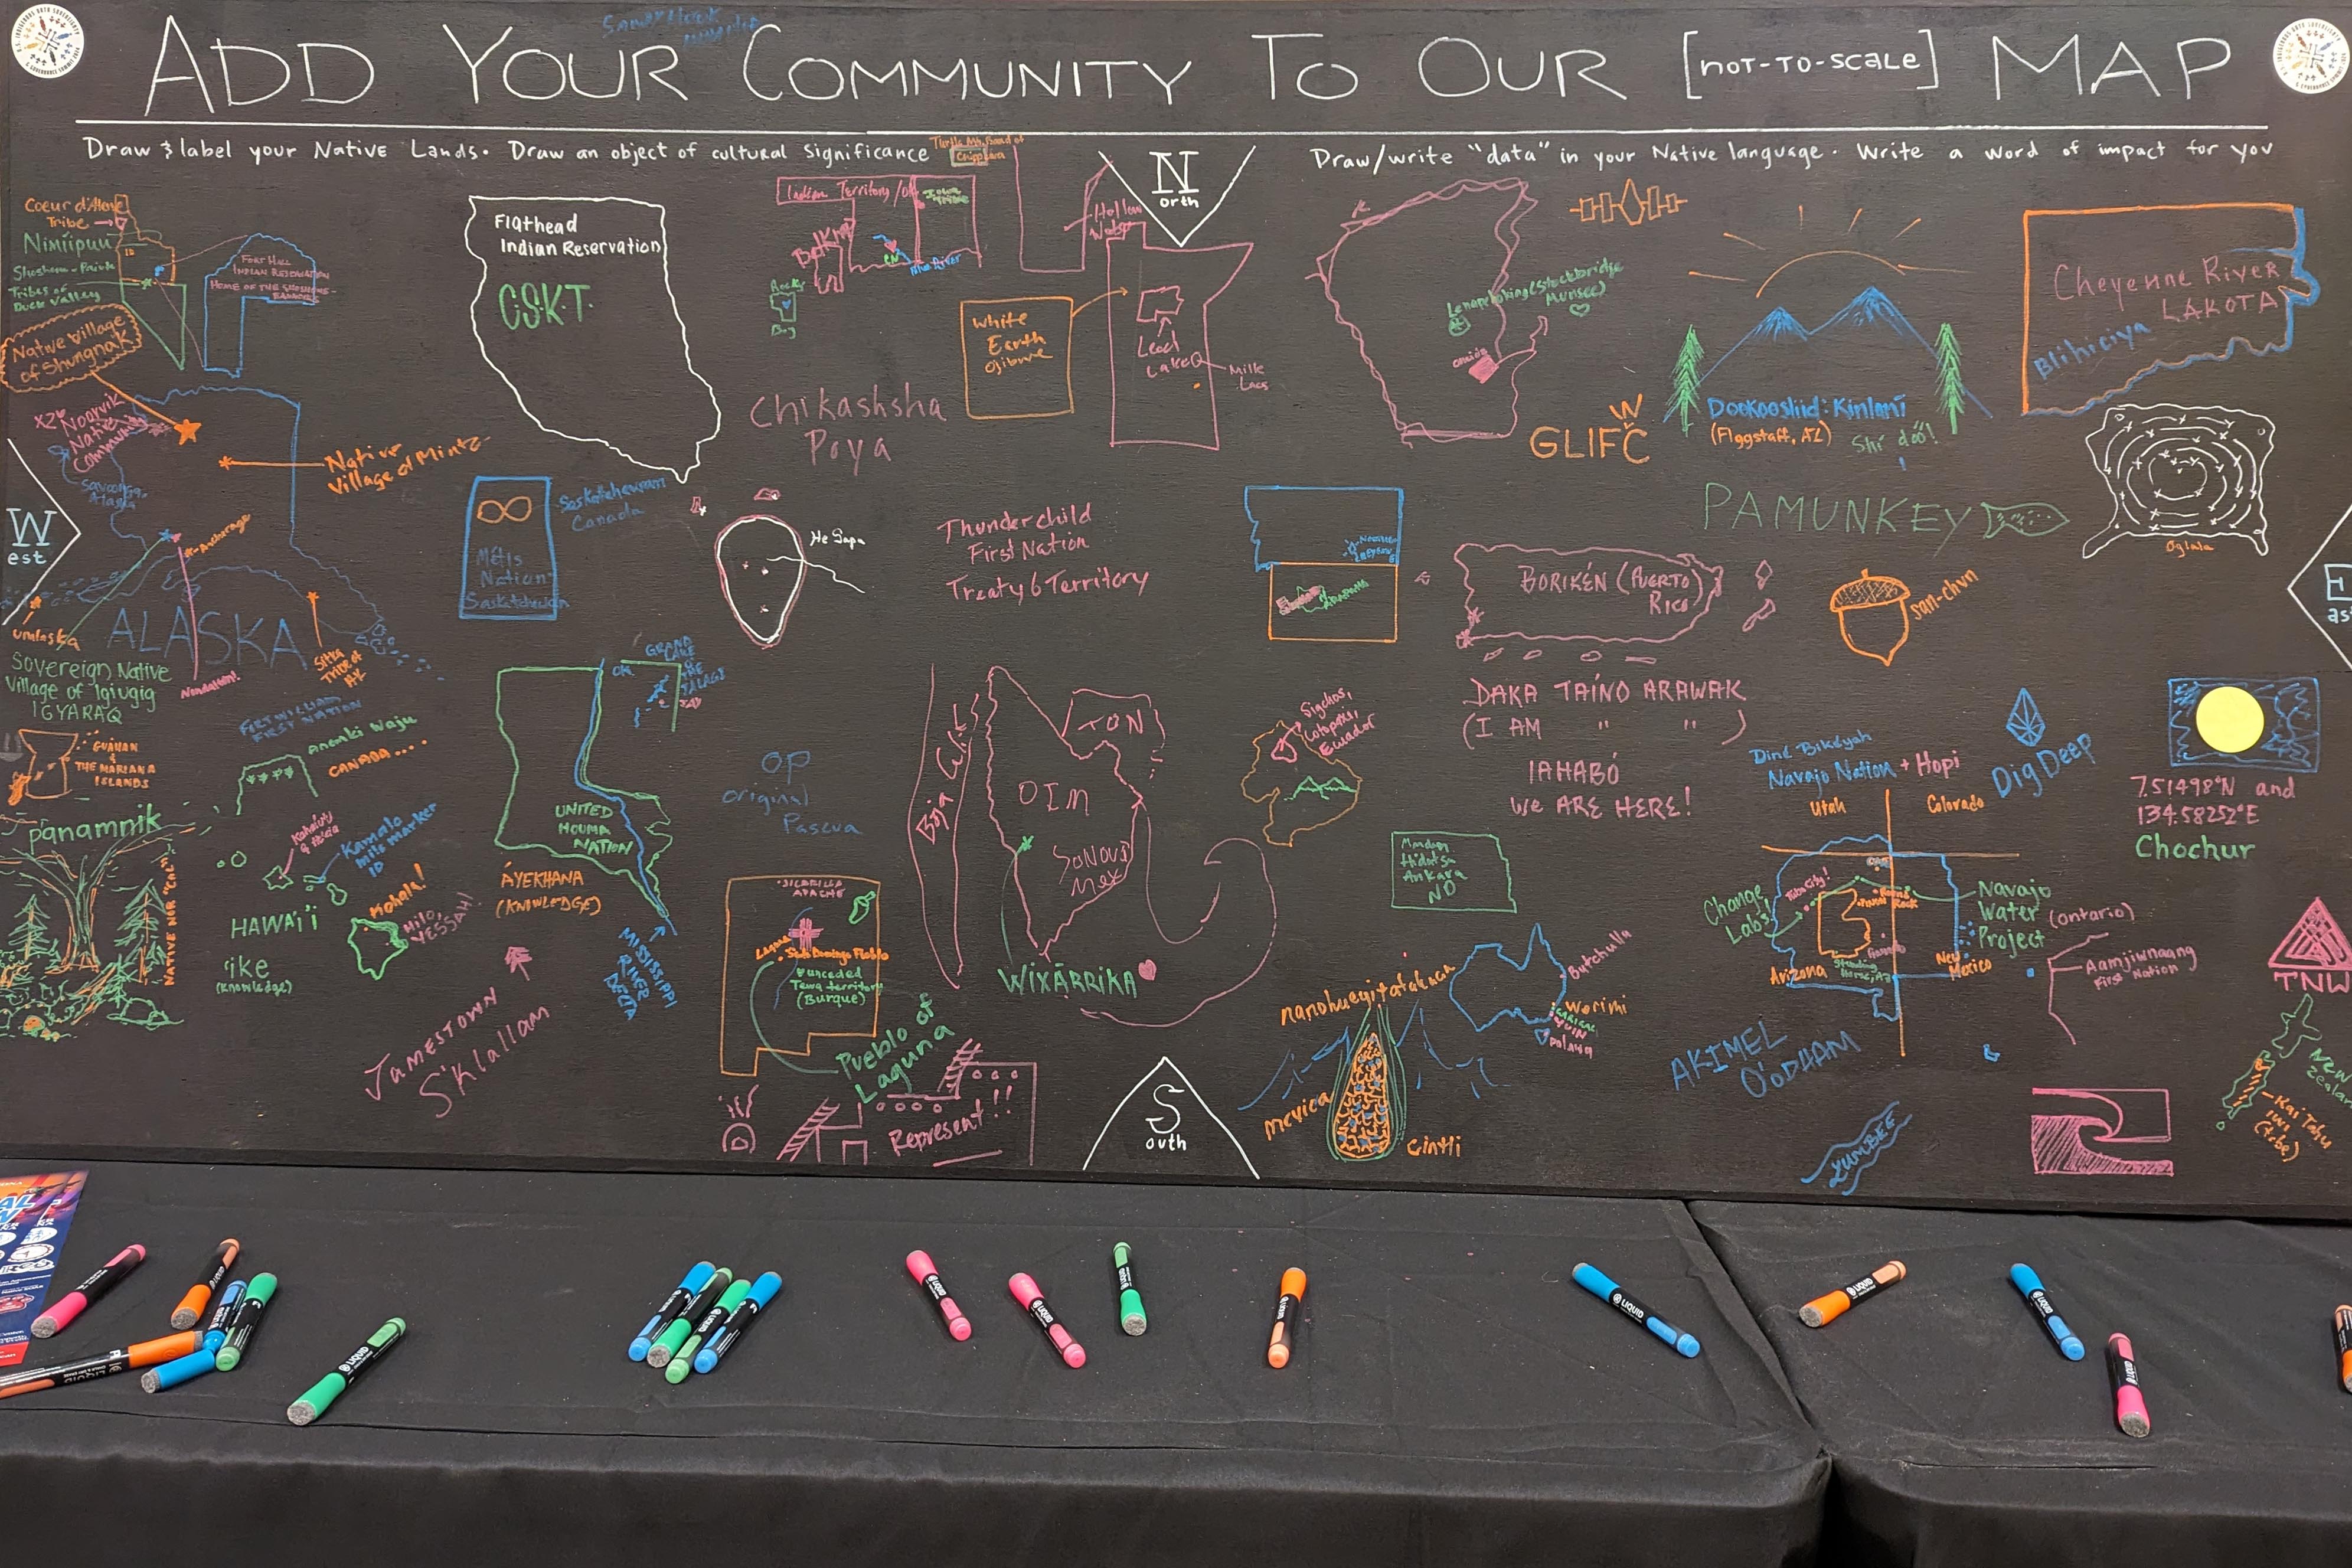 ADD YOUR COMMUNITY TO OUR [NOT-TO-SCALE] MAP
Draw & label your Native Lands. Draw an object of cultural significance
Draw/write "data" in your Native language. Write a word of impact for you
N
orth
W
est
S
outh
E
Coeur d'Alene
Tribe
Nimíipuu
Shoshone-Paiute
Tribes of
Duck Valley
ID
FORT HALL
INDIAN RESERVATION
HOME OF THE SHOSHONE-
BANNOCKS
Native Village
of Shungnak
Noorvik
Native
Community
Savoonga,
Alaska
Native
Village of Minto
Anchorage
Unalaska
ALASKA
Sitka
Tribe of
AK
Sovereign Native
Village of Igiugig
IGYARAQ
Flathead
Indian Reservation
CSKT
Turtle Mtn. Band of
Chippewa
Indian Territory/OK
Iowa
Tribe
Blue River
Rocky
Boy
Chikashsha
Poya
White
Earth
Ojibwe
Leech
Lake
Mille
Lacs
Lenapehoking (Stockbridge
Munsee)
GLIFWC
Dookooslííd: Kinłání
(Flagstaff, AZ)
Shí dóó!
Cheyenne River
LAKOTA
Blihiciya
Oglala
PAMUNKEY
Saskatchewan
Canada
Métis
Nation
Saskatchewan
He Sapa
Thunderchild
First Nation
Treaty 6 Territory
BORIKÉN (PUERTO
RICO)
DAKA TAÍNO ARAWAK
(I AM " " )
IAHABÓ
WE ARE HERE!
San-chun
FORT WILLIAM
FIRST NATION
Anemki Waju
CANADA....
GUÅHAN
&
THE MARIANA
ISLANDS
panamnik
NATIVE NOR "CAL"
Kamalo
mile marker
10
HAWAI'I
'ike
(knowledge)
Kohala!
Hilo,
YESSAH!
OK
GRAND
LAKE
UNITED
HOUMA
NATION
ÁYEKHANA
(KNOWLEDGE)
MISSISSIPPI
RIVER
DELTA
JAMESTOWN
S'Klallam
OP
original
Pascua
JICARILLA
APACHE
Laguna
Santo Domingo Pueblo
unceded
Tewa territory
(Burque)
Pueblo of
Laguna
Represent!!
Baja Calif
TON
OIM
SONORA
Mex
WIXÁRRIKA
Sigchos,
Cotopaxi,
Ecuador
Mandan
Hidatsa
Arikara
ND
Butchulla
Worimi
mexica
cintli
Diné Bikéyah
Navajo Nation + Hopi
Utah
Colorado
Dig Deep
Change
Labs
Tuba City!
Arizona
New
Mexico
Navajo
Water
Project
(Ontario)
Aamjiwnaang
First Nation
AKIMEL
O'ODHAM
LUMBEE
7.51498°N and
134.58252°E
Chochur
TNW
New
Kai Tahu
iwi
(tribe)
LIQUID